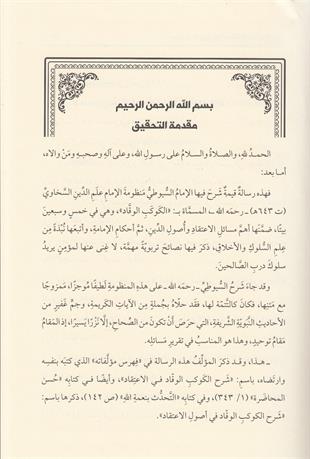 بسم الله الرحمن الرحيم
مقدمة التحقيق
الحمدُ للهِ، والصلاةُ والسلامُ على رسولِ اللهِ، وعلى آلهِ وصحبهِ ومَنْ والاه،
أما بعد:
فهذه رسالةٌ قيمةٌ شرَحَ فيها الإمامُ السُّيوطيُّ منظومةَ الإمامِ عَلَمِ الدِّينِ السَّخَاويِّ
(ت ٦٤٣هـ) ـ رحمَه الله ـ المسمَّاةَ بـ: «الكَوكَبِ الوقَّادِ»، وهي في خمسٍ وسبعينَ
بيتًا، ضمَّنَها أهمَّ مسائلِ الاعتقادِ وأصولِ الدِّينِ، ثمَّ أحكامِ الإمامةِ، وأتبعَها نُبْذةً مِن
علمِ السُّلوكِ والأخلاقِ، ذكرَ فيها نصائحَ تربويّةً مهمَّةً، لا غِنى عنها لمؤمنٍ يريدُ
سلوكَ دربِ الصَّالحينَ.
وقد جاءَ شرحُ السُّيوطيِّ ـ رحمَه الله ـ على هذهِ المنظومةِ لطيفًا مُوجزًا، ممزوجًا
مع متنِها، فكانَ كالتَّتمّةِ لها، فقد حلَّاهُ بجُملةٍ مِن الآياتِ الكريمةِ، وجمٍّ غفيرٍ من
الأحاديثِ النَّبويَّةِ الشَّريفةِ، التي حرَصَ أنْ تكونَ من الصِّحاحِ، إلَّا نَزْرًا يَسيرًا، إذِ المَقامُ
مَقامُ توحيدٍ، وهذا هو المناسبُ في تقريرِ مَسائلِه.
ـ هذا، وقد ذكرَ المؤلِّفُ هذه الرسالةَ في «فِهرس مؤلَّفاته» الذي كتبَه بنفسه
وارتضاه، باسم: «شرح الكوكبِ الوقَّاد في الاعتقاد»، وأيضًا في كتابِه «حُسن
المحاضرة» (١/ ٣٤٣)، وفي كتابِه «التَّحدُّث بنعمةِ اللهِ» (ص ١٤٢)، ذكرَها باسم:
«شرح الكوكبِ الوقَّاد في أصولِ الاعتقاد».